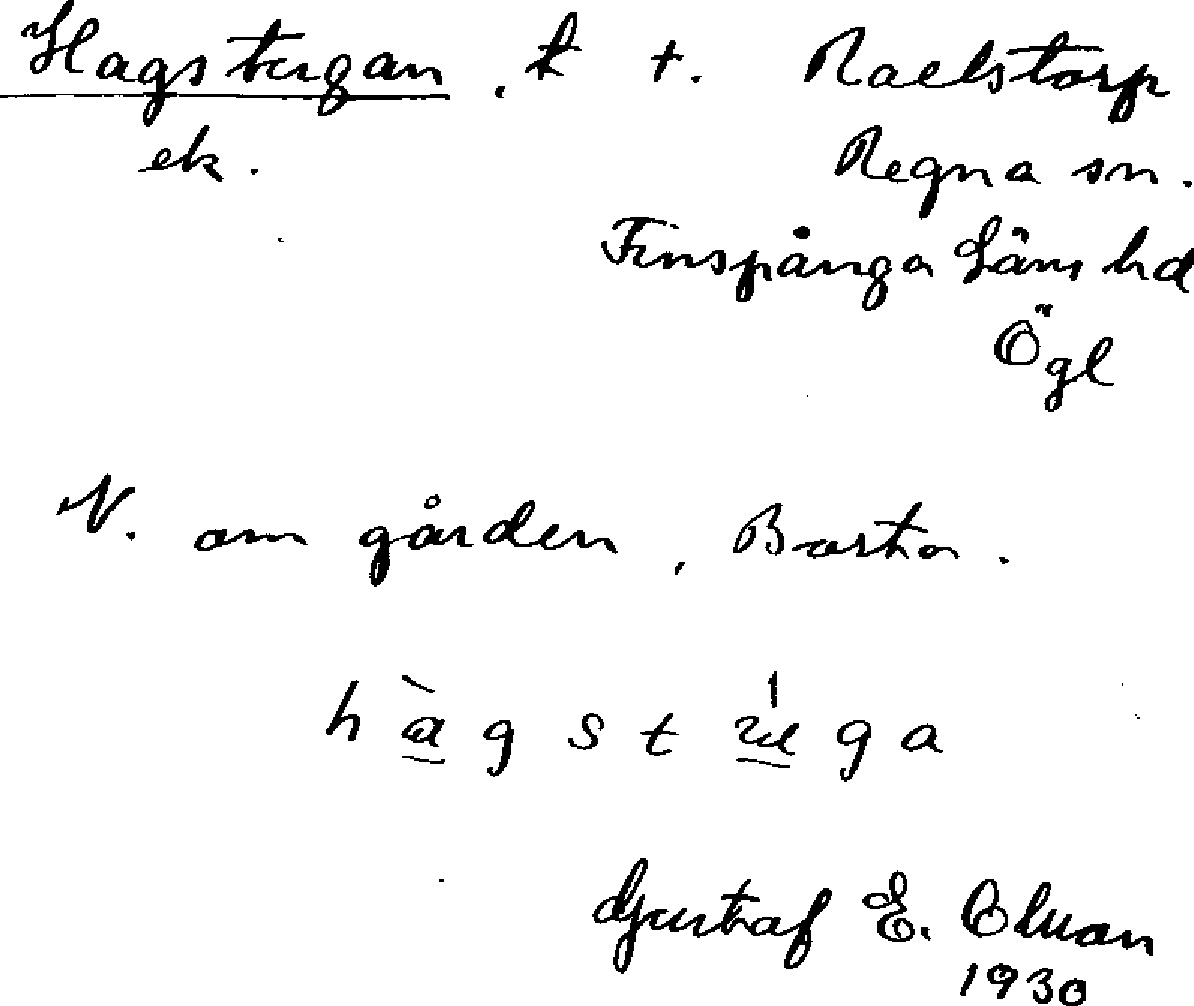 Hagstugan, t t. Raelstorp
ek. Regna sn.
Finspånga läns hd
Ögl
N. om gården, Borta.
hàgstúga
Gustaf E.
1930